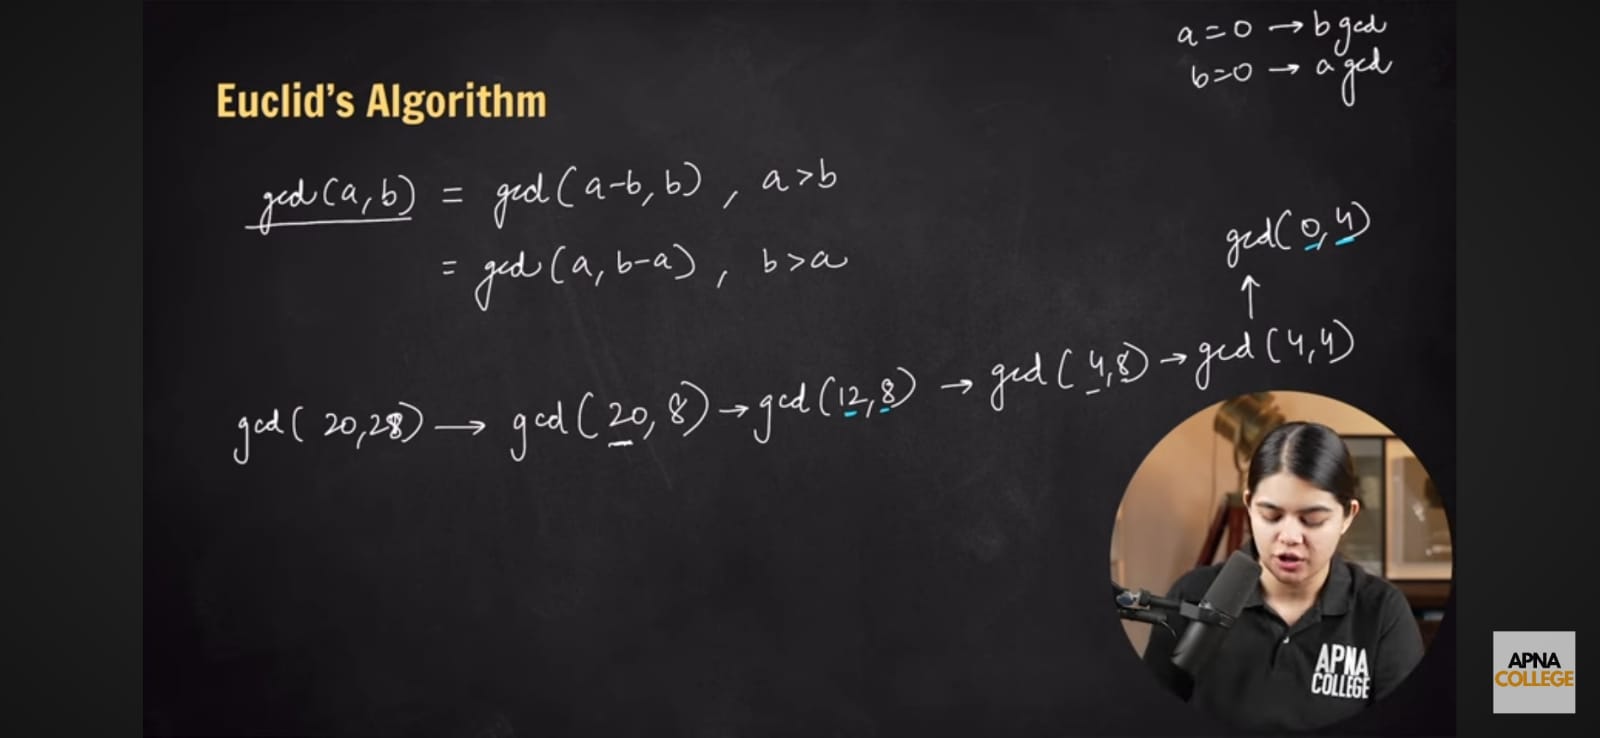 a=0 → b gcd
b=0 → a gcd
Euclid's Algorithm
gcd(a,b) = gcd(a-b,b) , a>b
= gcd(a,b-a) , b>a
gcd(0,4)
↑
gcd(20,28) → gcd(20,8) → gcd(12,8) → gcd(4,8) → gcd(4,4)
APNA
COLLEGE
APNA
COLLEGE